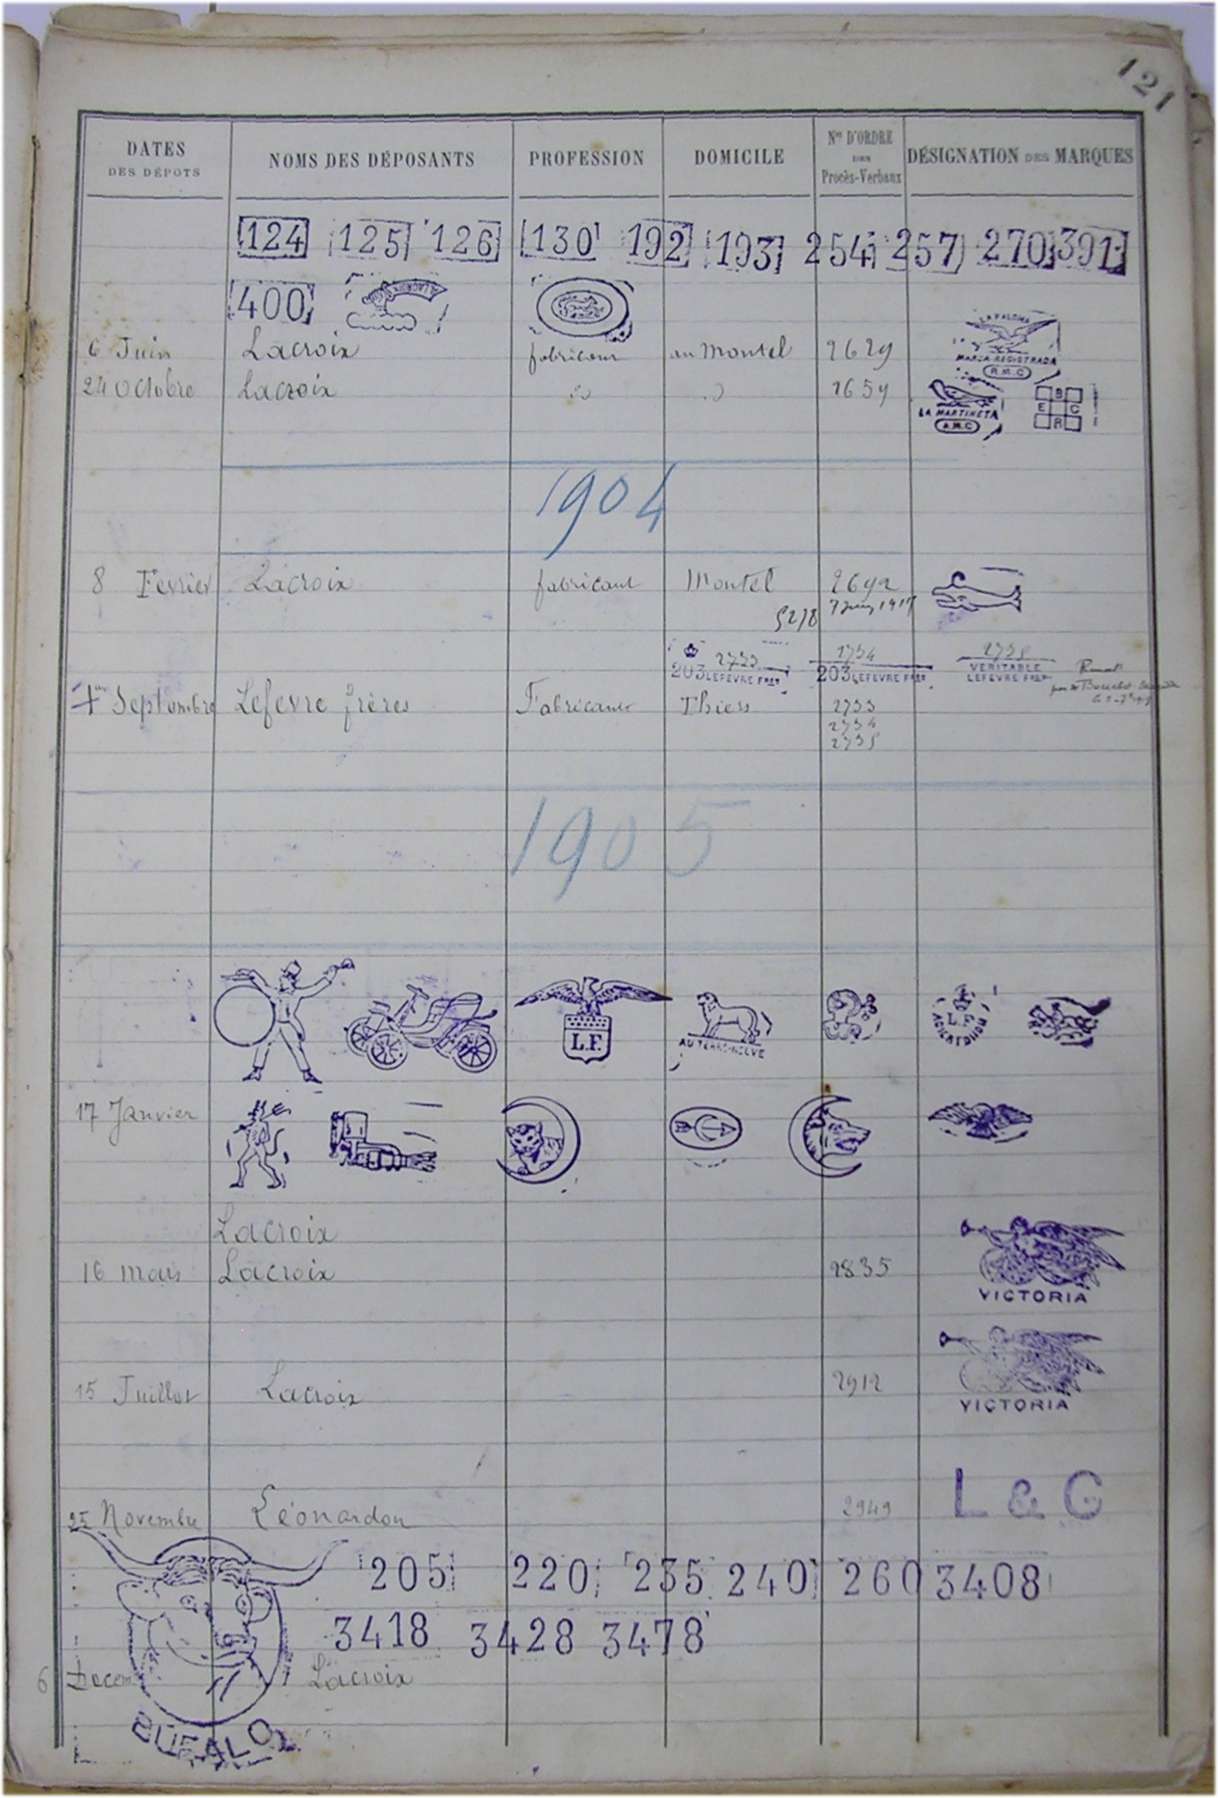 121
DATES DES DÉPÔTS NOMS DES DÉPOSANTS PROFESSION DOMICILE Nos D'ORDRE DES Procès-Verbaux DÉSIGNATION DES MARQUES
124 125 126 130 192 193 254 257 270 391
400
LA PALOMA
6 Juin Lacroix fabricant au Montel 2629 MARCA REGISTRADA
R.M.C
24 Octobre Lacroix 2659 LA MARTINETA B E C R
A.M.C
1904
8 Fevrier Lacroix fabricant Montel 2692
5218
2733 2734 2735
203 LEFEVRE FRES 203 LEFEVRE FRES VERITABLE LEFEVRE FRES
1er Septembre Lefevre frères Fabricants Thiers 2733
2734
2735
1905
L.F. AU TERRE-NEUVE L.F.
17 Janvier
Lacroix
16 mars Lacroix 2835 VICTORIA
15 Juillet Lacroix 2912 VICTORIA
25 Novembre Léonardon 2949 L & G
205 220 235 240 260 3408
3418 3428 3478
6 Decem Lacroix
BUFALO